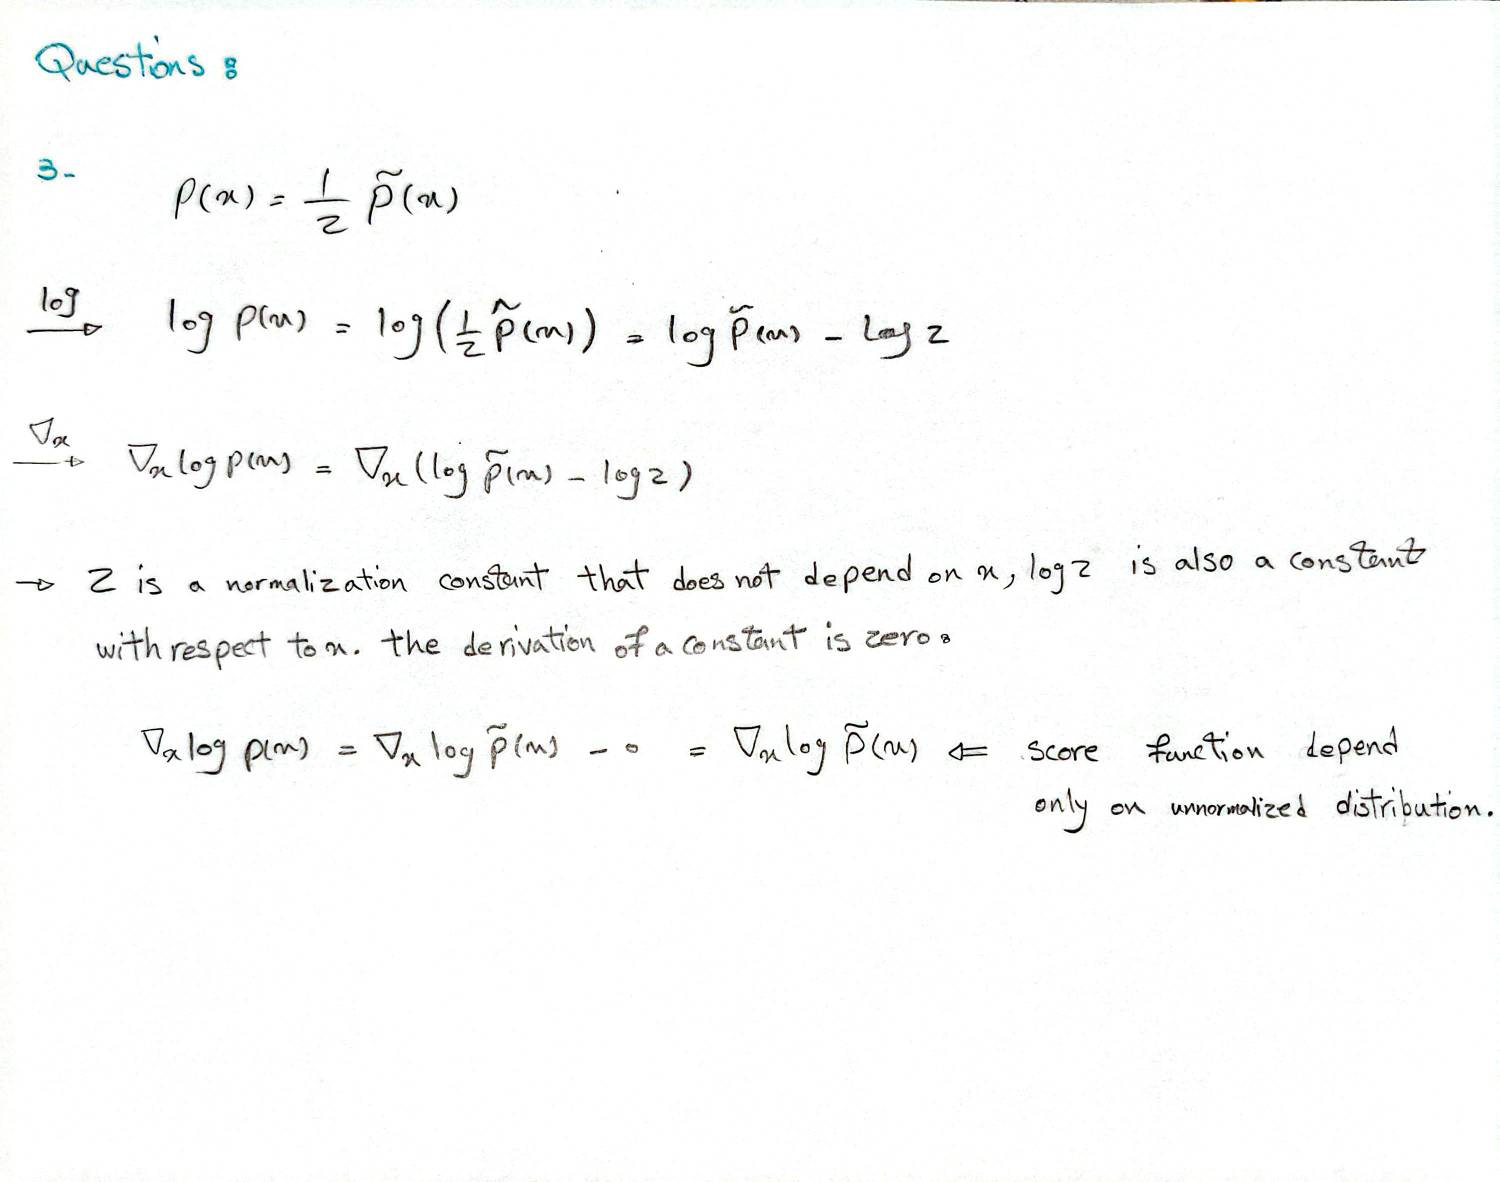 Questions :
3-
p(x) = 1/Z p̃(x)
log→ log p(x) = log(1/Z p̃(x)) = log p̃(x) - log Z
∇x→ ∇x log p(x) = ∇x (log p̃(x) - log Z)
→ Z is a normalization constant that does not depend on x, log Z is also a constant
with respect to x. the derivation of a constant is zero :
∇x log p(x) = ∇x log p̃(x) - 0 = ∇x log p̃(x) ⇐ score function depend
only on unnormalized distribution.